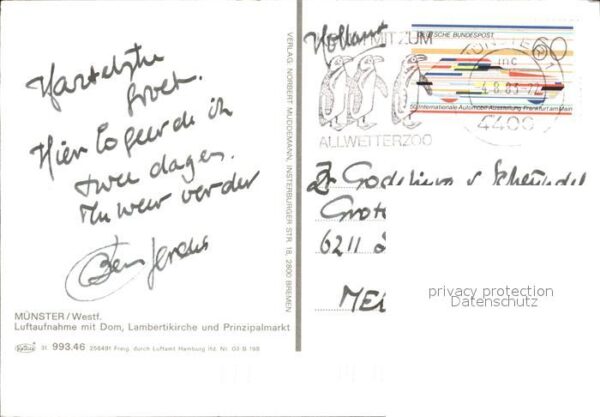 Hartelijke
Groet.
Hier logeerde ik
twee dagen.
Nu weer verder
MÜNSTER/Westf.
Luftaufnahme mit Dom, Lambertikirche und Prinzipalmarkt
31 993.46 256491 Freig. durch Luftamt Hamburg lfd. Nr. 03 B 198
VERLAG: NORBERT MUDDEMANN, INSTERBURGER STR. 18, 2800 BREMEN
Holland
MIT ZUM
ALLWETTERZOO
DEUTSCHE BUNDESPOST
60
50. Internationale Automobil-Ausstellung Frankfurt am Main
MÜNSTER 1
mc
4.8.83-22
4400
Zr
Grote
6211
privacy protection
Datenschutz